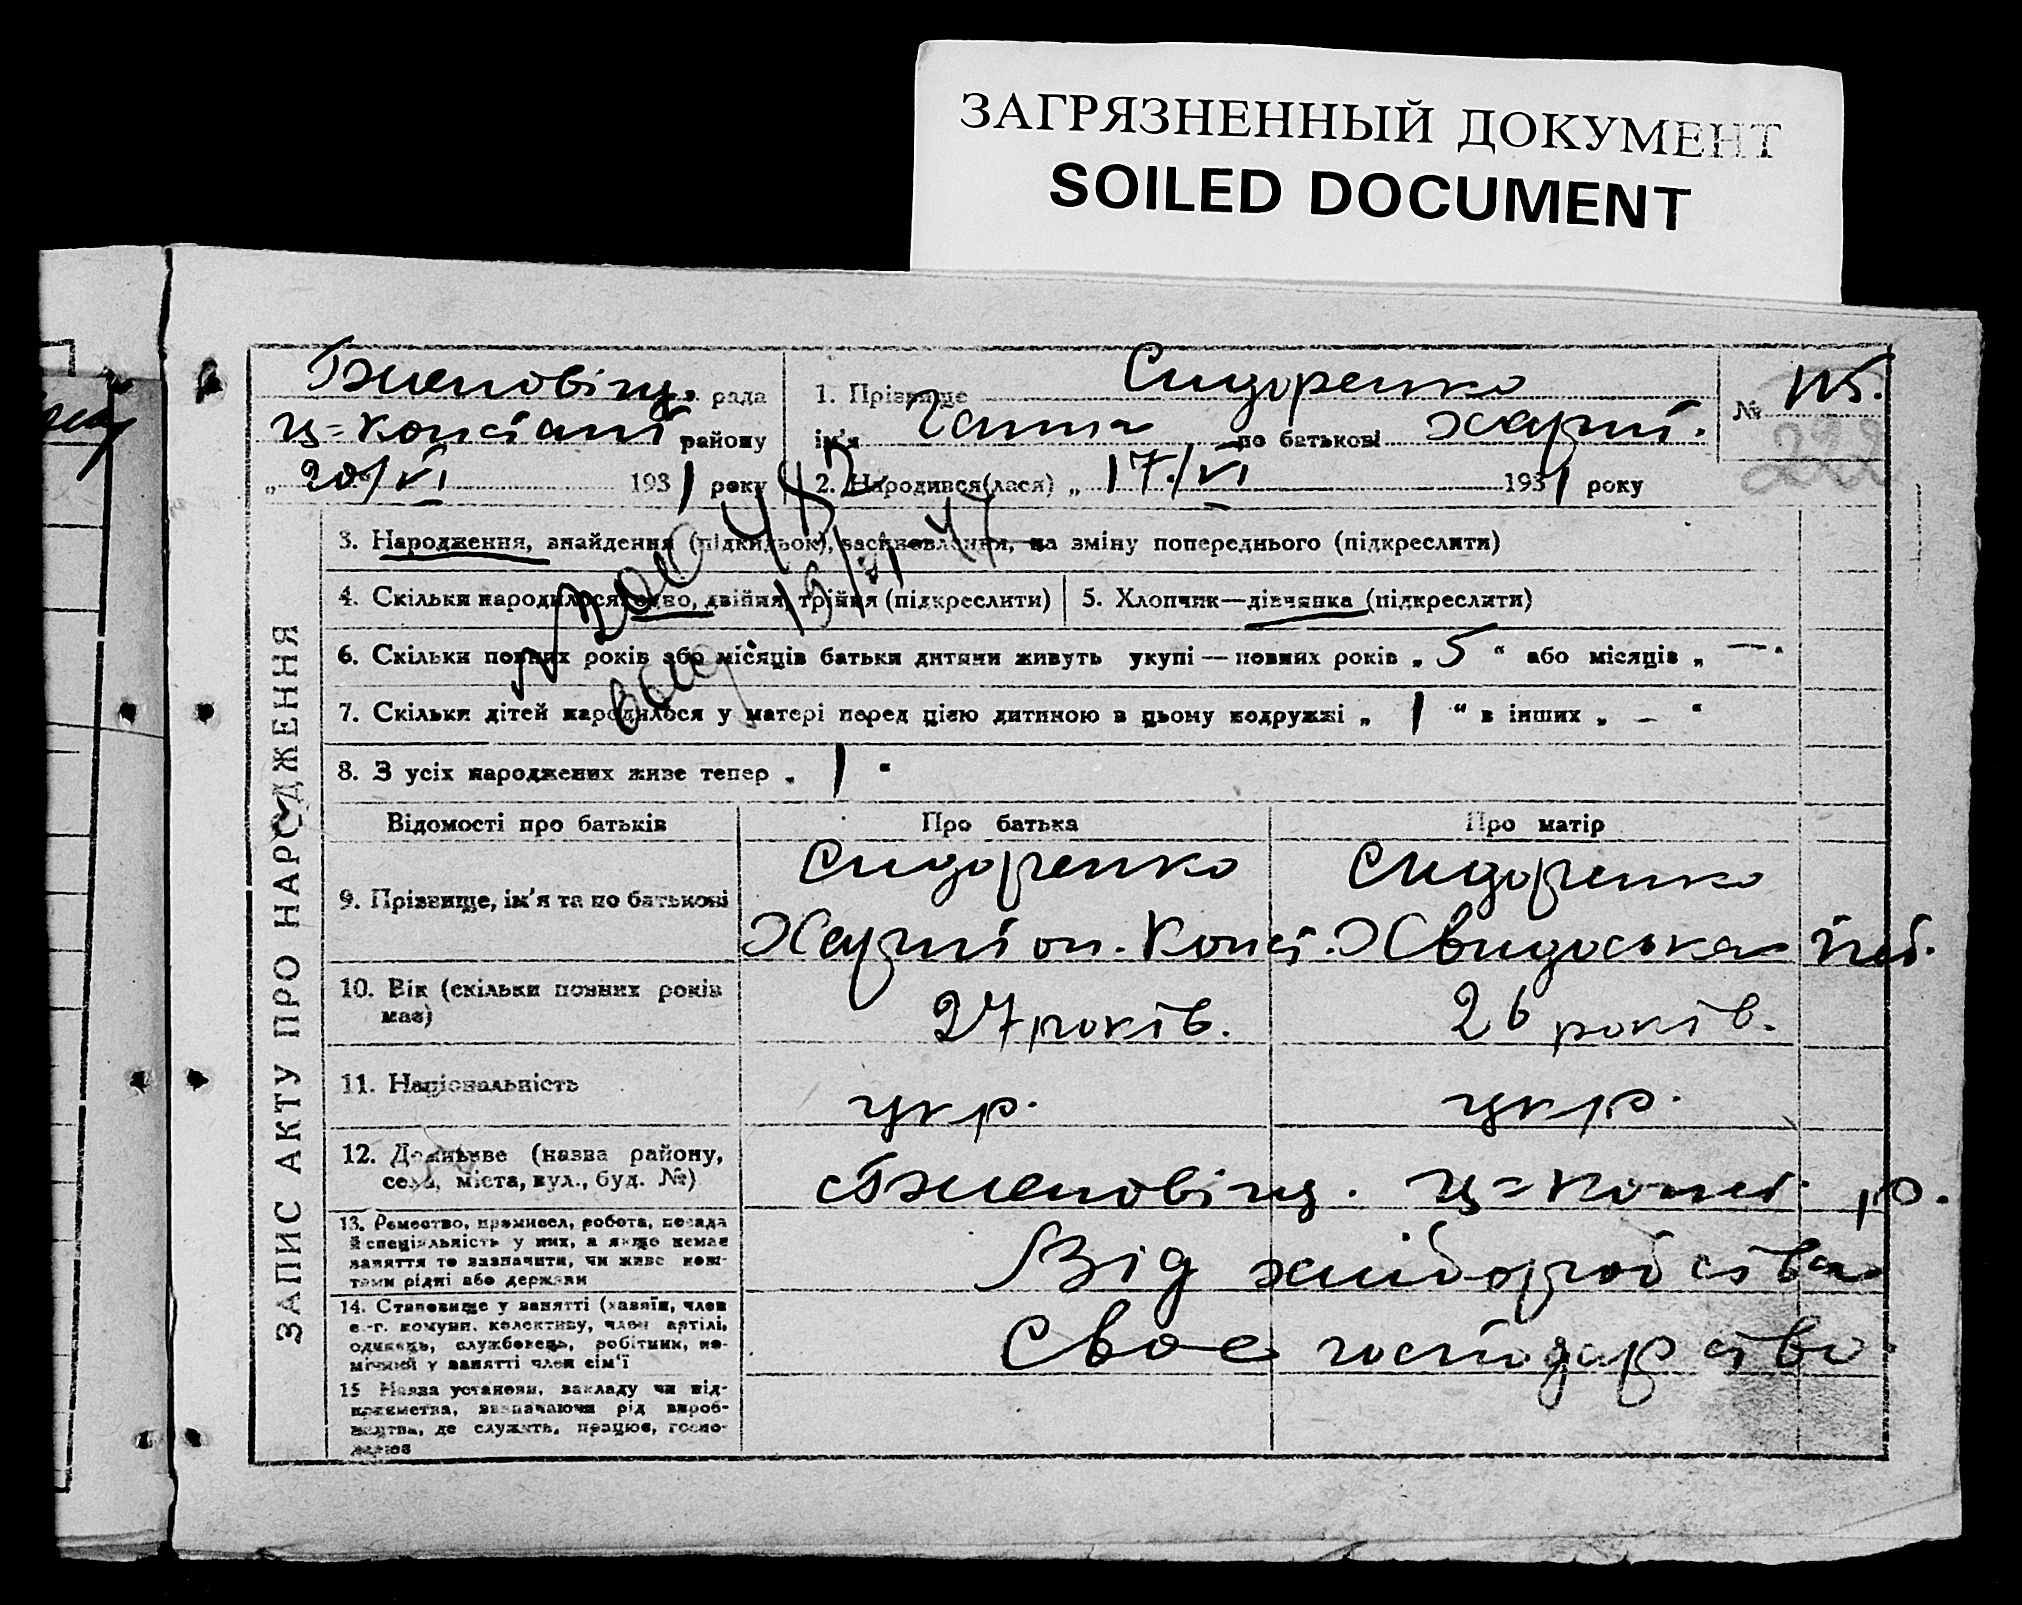 ЗАГРЯЗНЕННЫЙ ДОКУМЕНТ
SOILED DOCUMENT
рада
ц=Констант району
„ 20/VI 1931 року
1. Прізвище Сидоренко
ім'я Ганна по батькові Харит.
2. Народився(лася) „ 17/VI 1931 року
№ 115.
222
3. Народження, знайдення (підкидьок), засиновлення, на зміну попереднього (підкреслити)
4. Скільки народилося: одно, двійня, трійня (підкреслити)
5. Хлопчик—дівчинка (підкреслити)
6. Скільки повних років або місяців батьки дитини живуть укупі — повних років „ 5 " або місяців „ — "
7. Скільки дітей народилося у матері перед цією дитиною в цьому подружжі „ 1 " в інших „ — "
8. З усіх народжених живе тепер „ 1 "
ЗАПИС АКТУ ПРО НАРОДЖЕННЯ
Відомості про батьків
Про батька
Про матір
9. Прізвище, ім'я та по батькові
Сидоренко
Харитон. Конст.
Сидоренко
Хвидоська
10. Вік (скільки повних років має)
27 років.
26 років.
11. Національність
укр.
укр.
12. Домівство (назва району,
села, міста, вул., буд. №)
ц=Конст. р.
13. Ремество, промисел, робота, посада
й спеціяльність у них, а якщо немає
заняття то зазначити, чи живе кош-
тами рідні або держави
Від хліборобства
14. Становище у занятті (хазяїн, член
с.-г. комуни, колективу, член артілі,
одинець, службовець, робітник, по-
мічний у занятті член сім'ї
Своє господарство
15 Назва установи, закладу чи під-
приємства, зазначаючи рід вироб-
ництва, де служить, працює, госпо-
дарює